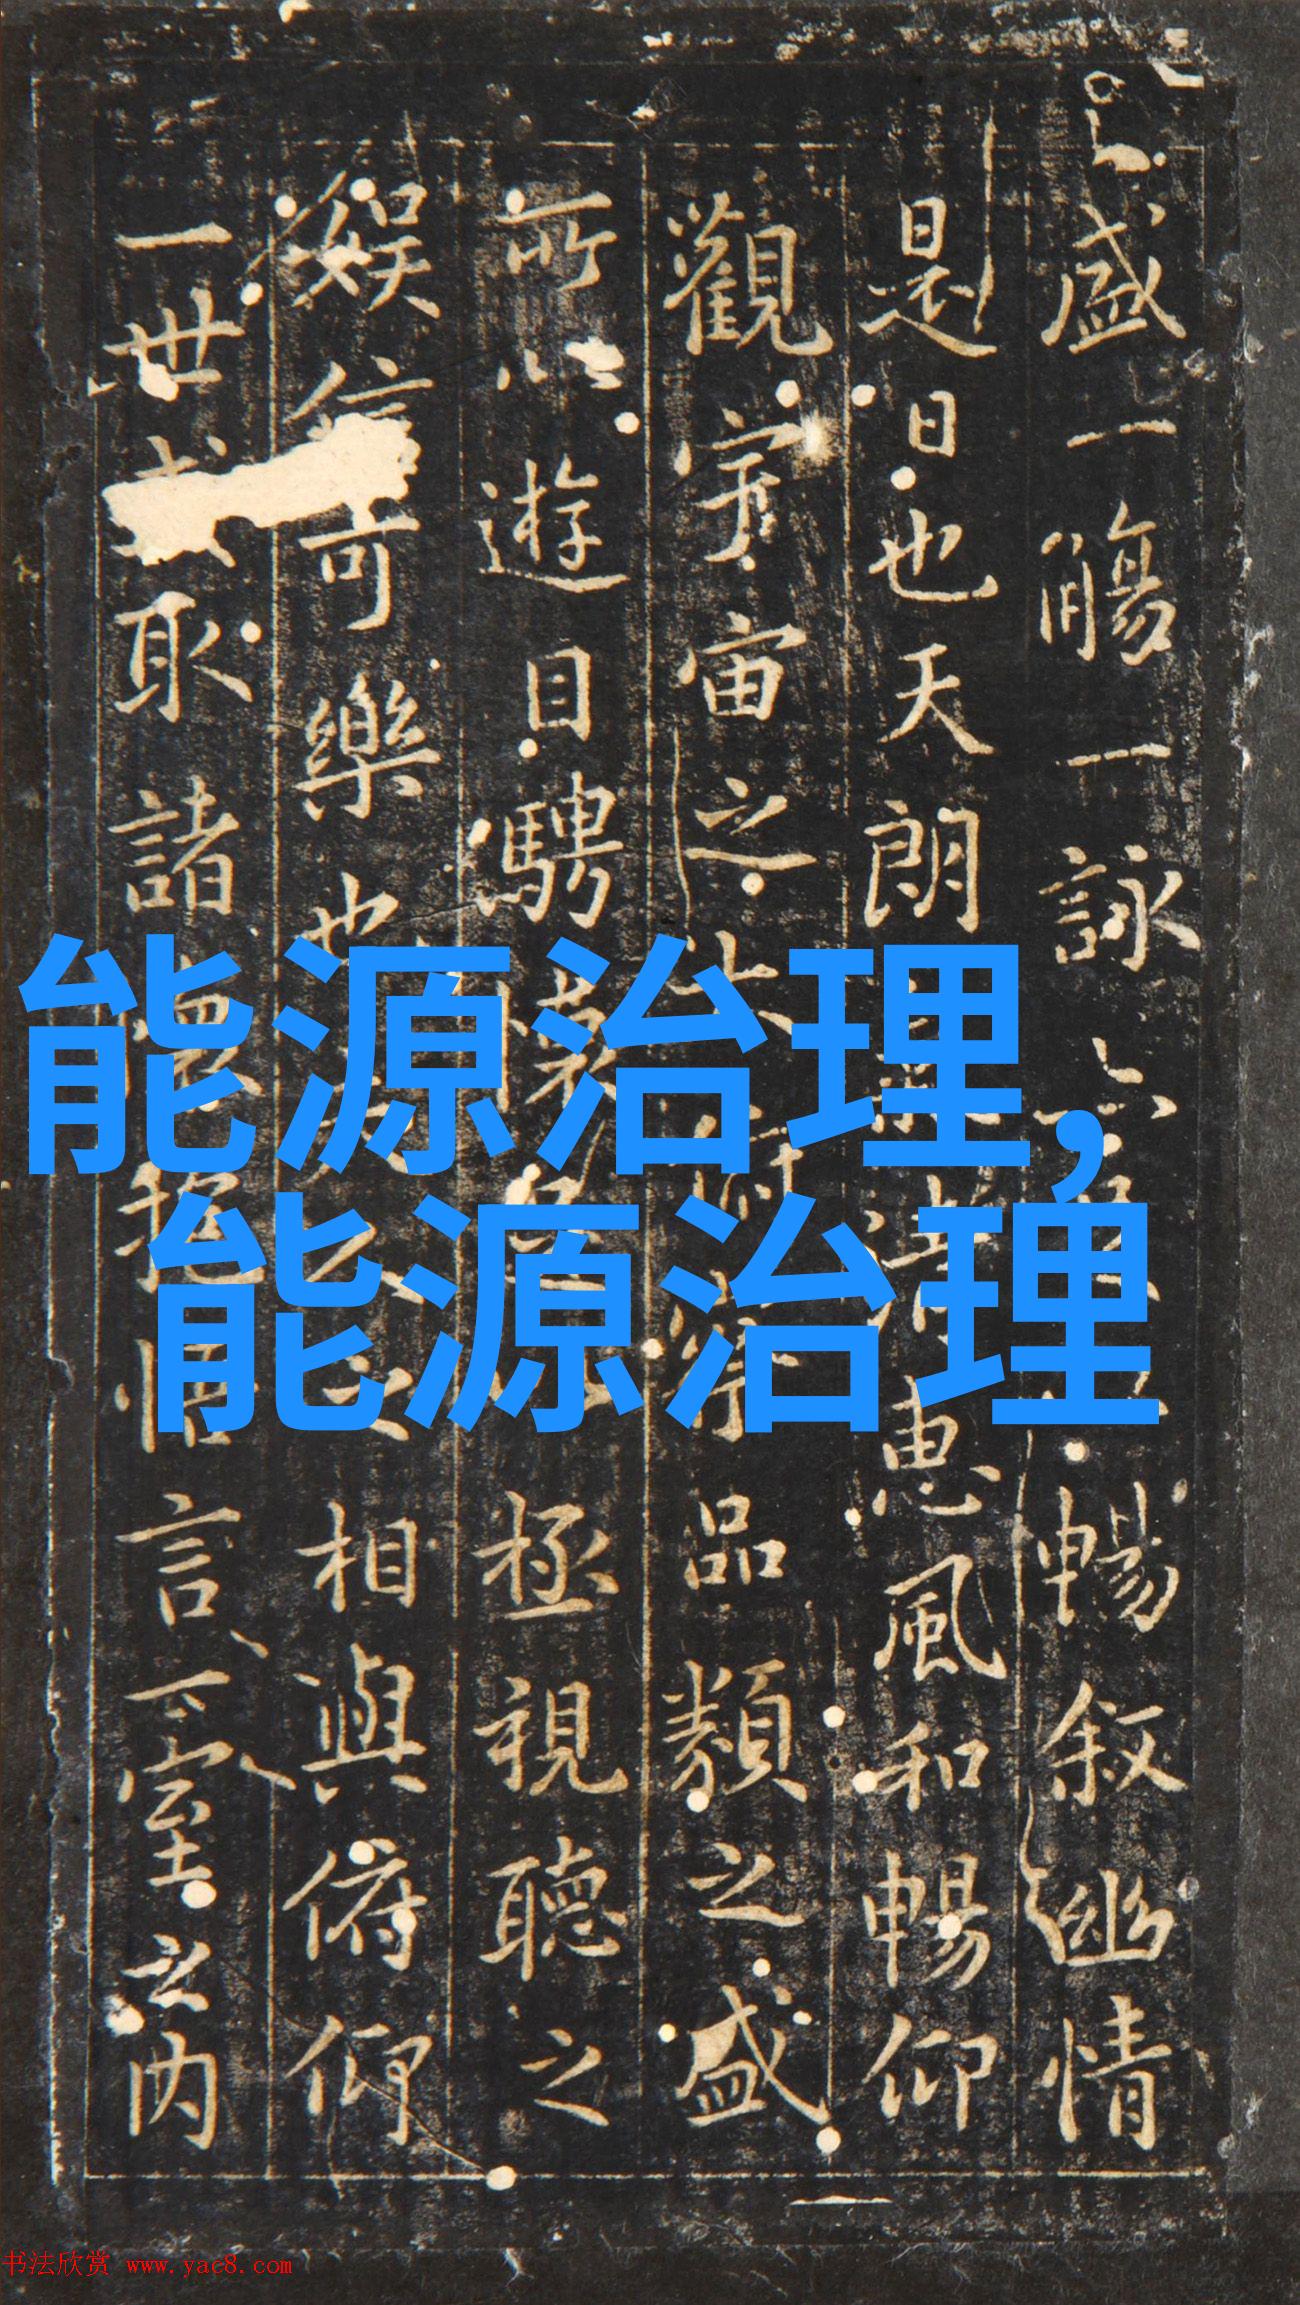 盛一觴一詠亦 暢叙幽情
是日也天朗 清惠風和暢仰
觀宇宙之大俯察品類之盛
所以遊目騁 極視聽之
娱信可樂也 相與俯仰
一世 取諸懷抱悟言一室之内
能源治理,
能源治理
书法欣赏 www.yac8.com